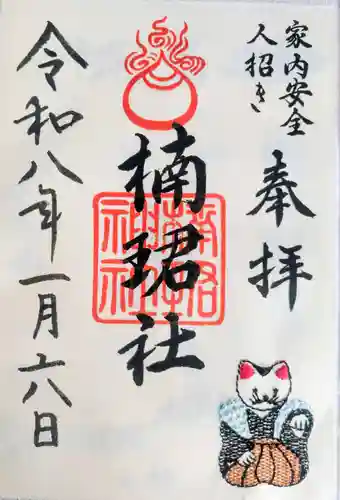 家内安全
人招き
奉拝
楠珺社
令和八年一月六日